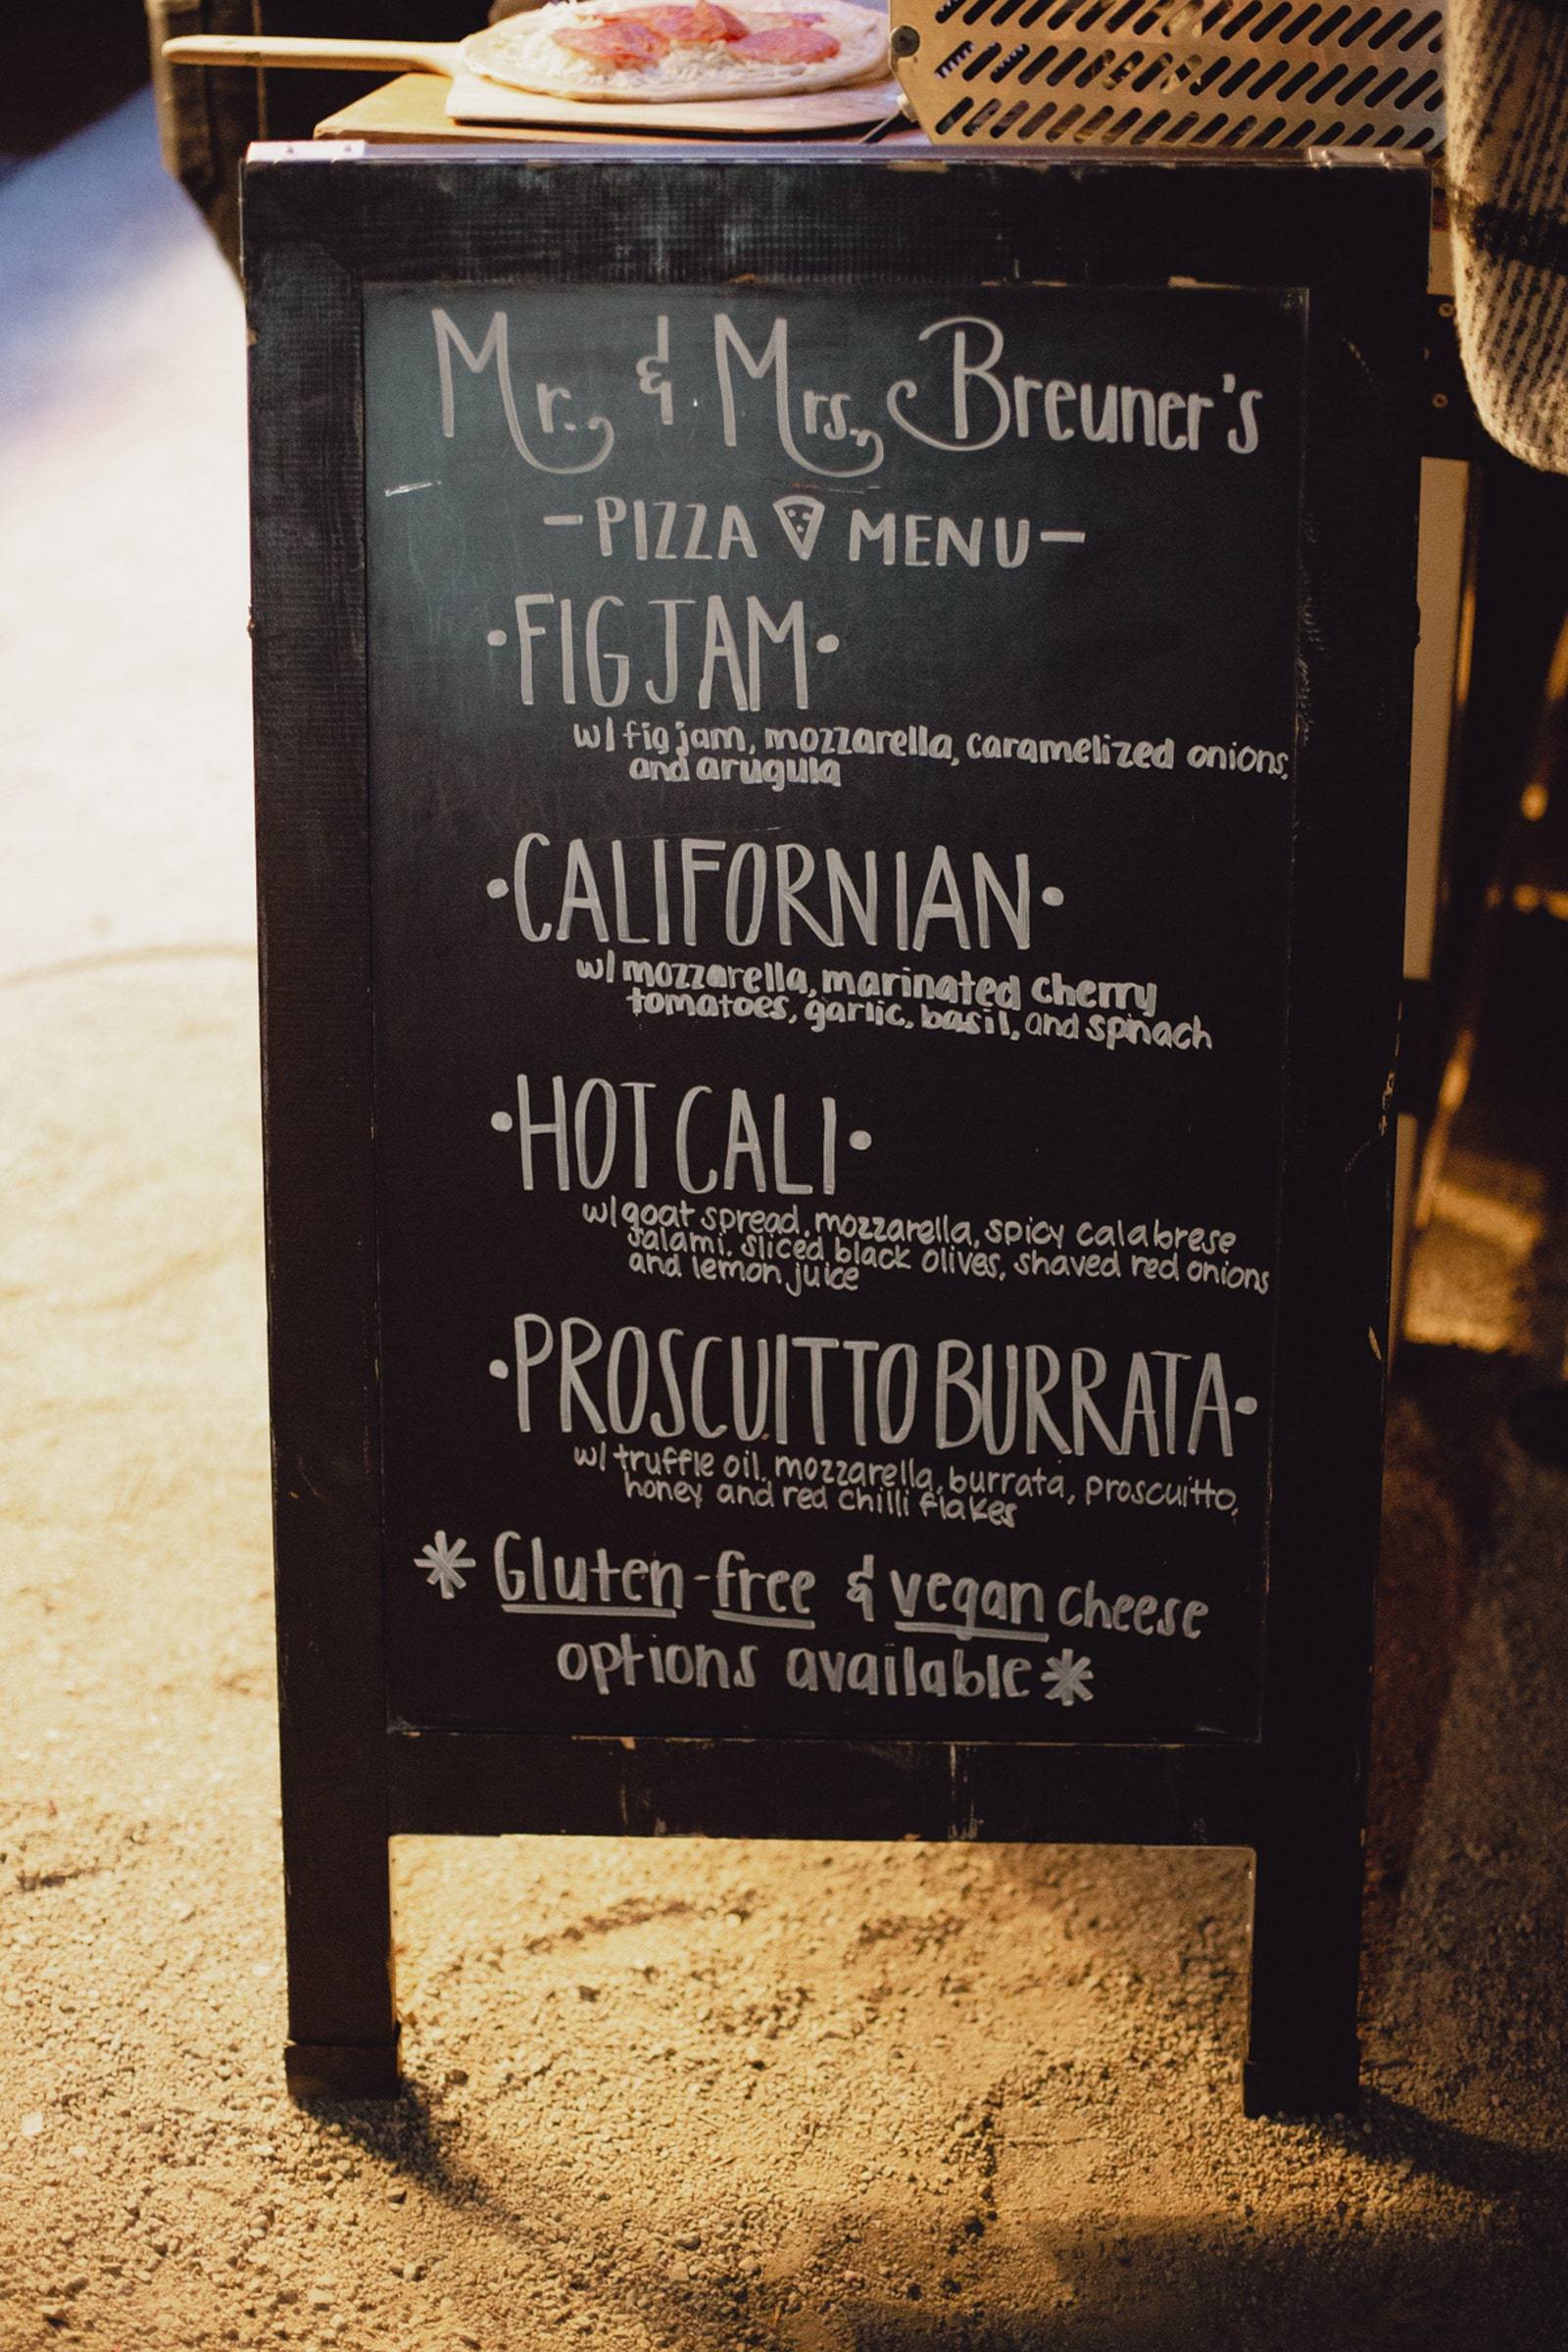 Mr. & Mrs. Breuner's
-PIZZA MENU-
•FIG JAM•
w/ fig jam, mozzarella, caramelized onions,
and arugula
•CALIFORNIAN•
w/ mozzarella, marinated cherry
tomatoes, garlic, basil, and spinach
•HOT CALI•
w/ goat spread, mozzarella, spicy calabrese
salami, sliced black olives, shaved red onions
and lemon juice
•PROSCUITTO BURRATA•
w/ truffle oil, mozzarella, burrata, proscuitto,
honey and red chilli flakes
* Gluten-free & vegan cheese
options available *